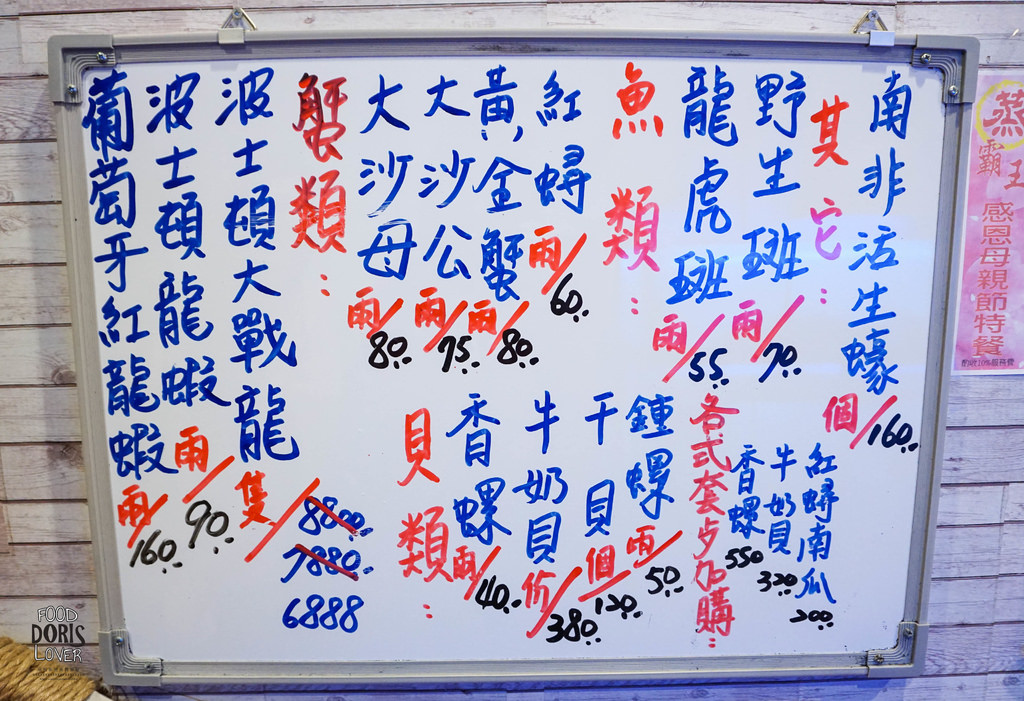 葡萄牙紅龍蝦 兩/160.
波士頓龍蝦 兩/90.
波士頓大戰龍 隻/8800.
7880.
6888
蟹類：
大沙母 兩/80.
大沙公 兩/75.
黃金蟹 兩/80.
紅蟳 兩/60.
魚類：
龍虎斑 兩/55.
野生斑 兩/70.
其它：
南非活生蠔 個/160.
貝類：
香螺 兩/40.
牛奶貝 份/380.
干貝 個/120.
鐘螺 兩/50.
各式套歺加購：
香螺 550
牛奶貝 320
紅蟳南瓜 200
蒸
霸王
感恩母親節特餐
酌收10%服務費
FOOD
DORIS
LOVER